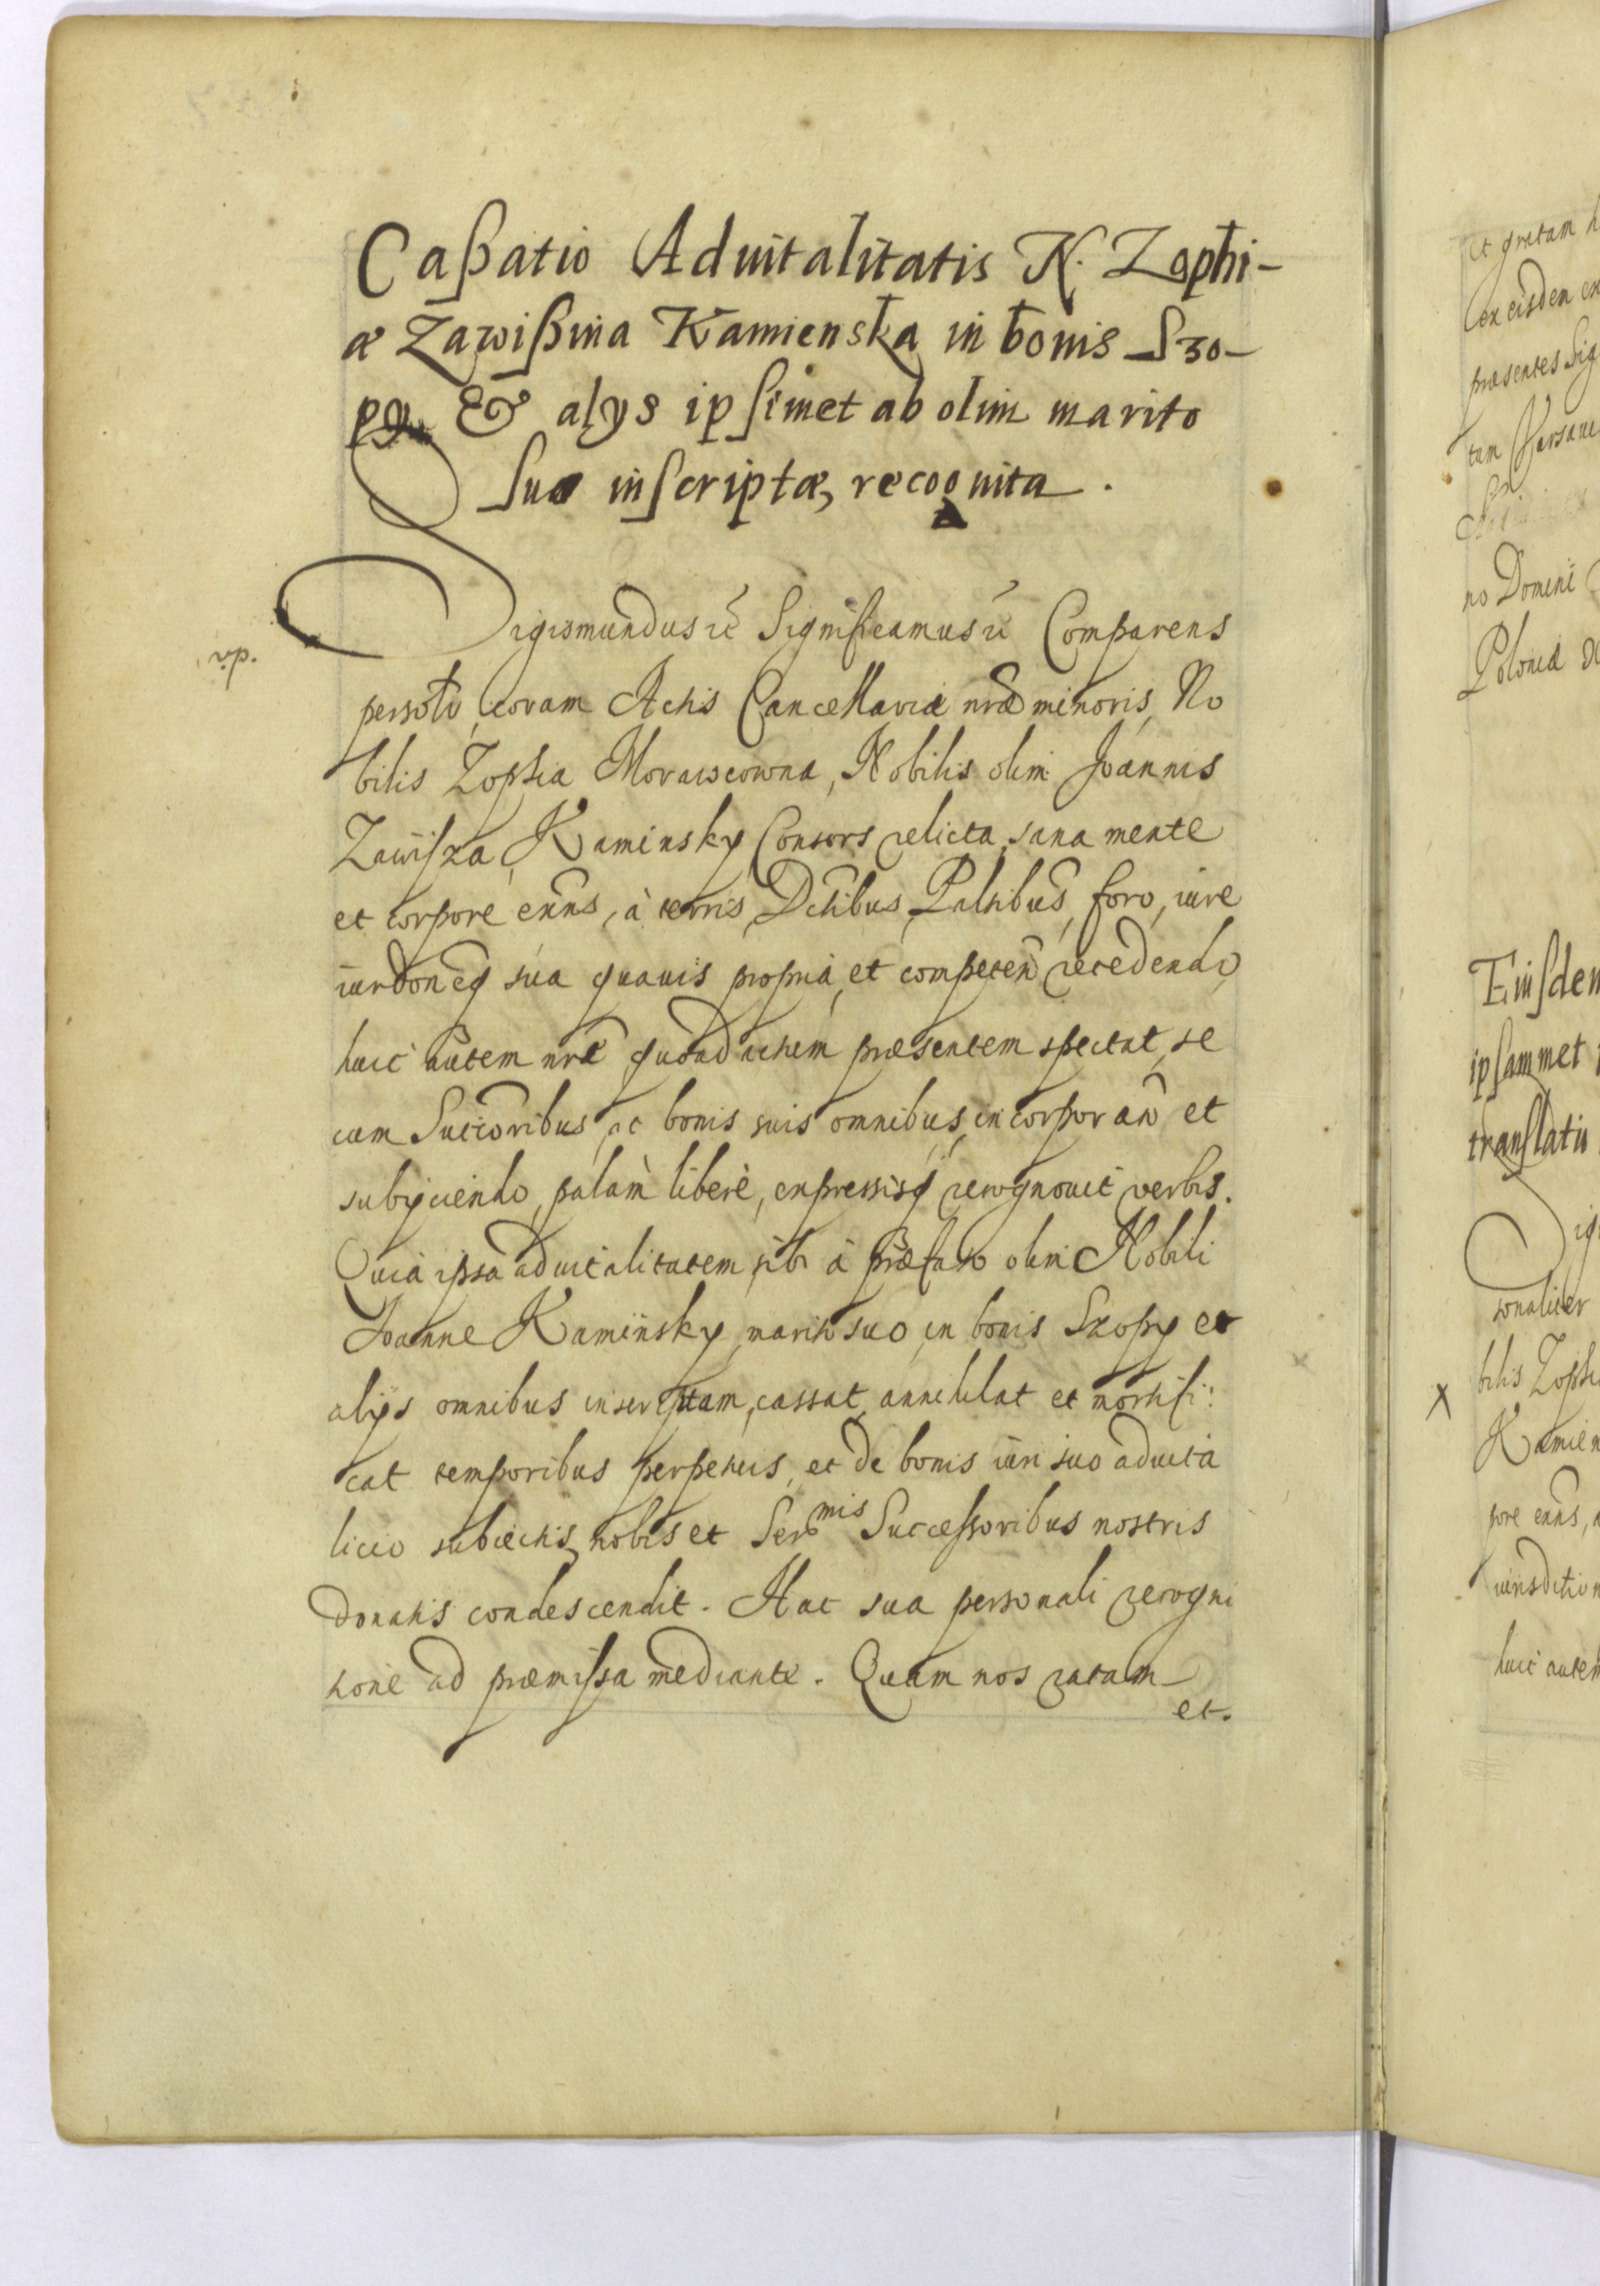 Caßatio Aduitalitatis N. Zophi-
æ Zawißina Kamienska in bonis Szo-
py & alys ipsimet ab olim marito
suo inscriptæ, recognita.
Sigismundus etc Significamus etc Comparens
v.p.
personlr coram Actis Cancellariæ nræ minoris, No
bilis Zophia Morawcowna, Nobilis olim Joannis
Zawisza Kaminsky Consors relicta, sana mente
et corpore exns, à terris, Dctibus, Palnibus, foro, iure
iurdoneq sua quauis propria et competen recedendo,
huic autem nræ quoad actum præsentem spectat, se
cum Succoribus, ac bonis suis omnibus, incorporan et
subyciendo, palàm liberè, expressisq recognouit verbis.
Quia ipsa aduitalitatem, sibi à præfato olim Nobili
Joanne Kaminsky, marito suo, in bonis Szopy et
alys omnibus inscriptam, cassat, annihilat et mortifi:
cat temporibus perpetuis, et de bonis iuri suo aduita
licio subiectis, nobis et Sermis Successoribus nostris
donatis condescendit. Hac sua personali recogni
tione ad præmissa mediante. Quam nos ratam
et.
et gratam
ex eisdem
præsentes Sig
no Domini
Poloniæ
Eiusdem
ipsammet
translatio
Sigi
sonaliter
x
bilis Zophi
Kamien
pore exns,
iurisdition
huic autem